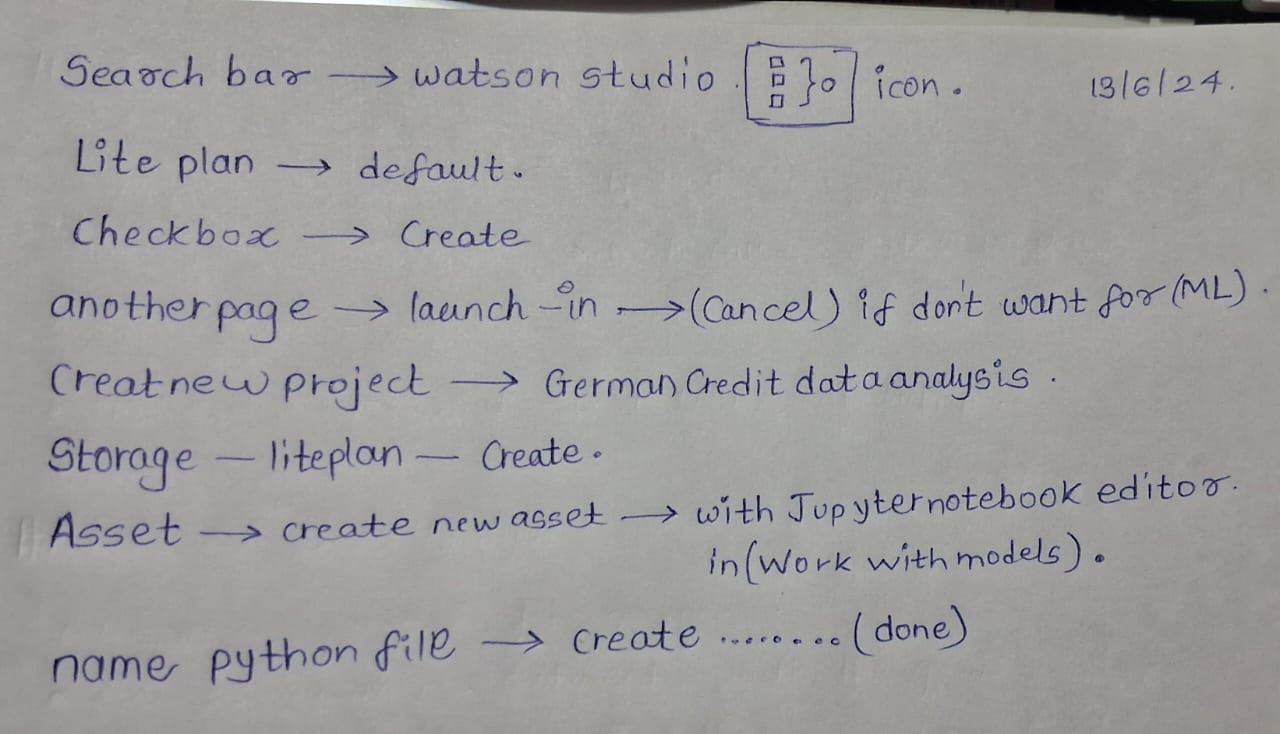 Search bar → watson studio. icon. 13/6/24.
Lite plan → default.
Checkbox → Create
another page → launch-in → (Cancel) if don't want for (ML).
Creatnew project → German Credit data analysis.
Storage — liteplan — Create.
Asset → create new asset → with Jupyternotebook editor.
in (Work with models).
name python file → create ........ (done)